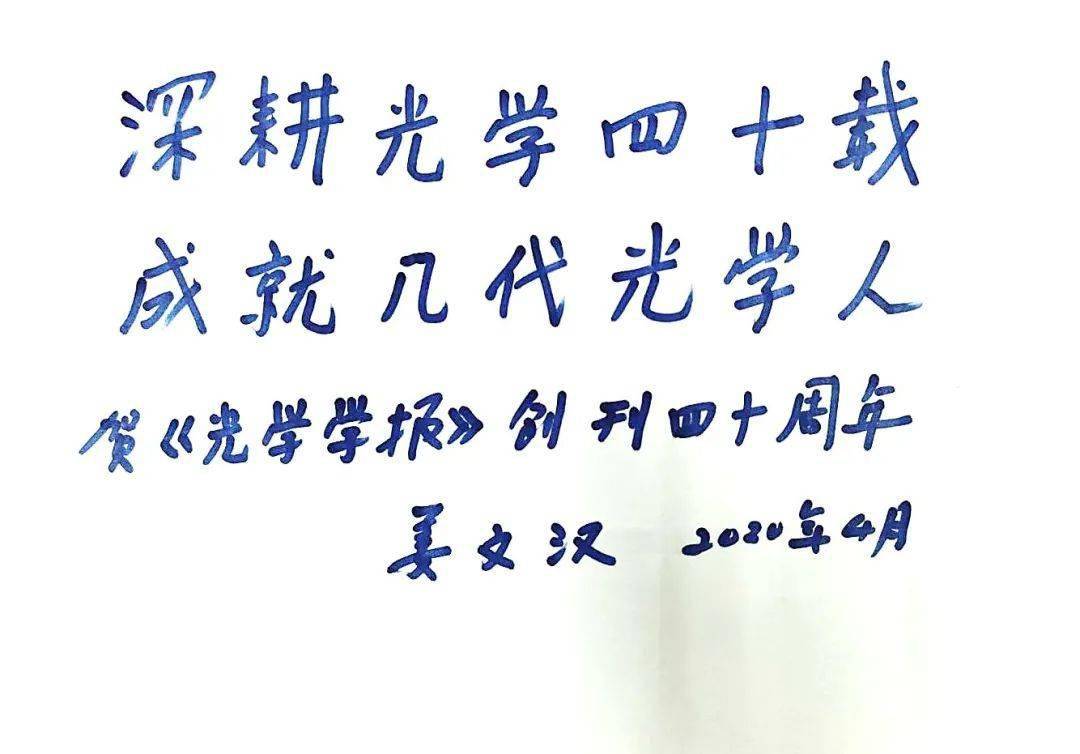 深耕光学四十载
成就几代光学人
贺《光学学报》创刊四十周年
姜文汉 2020年4月